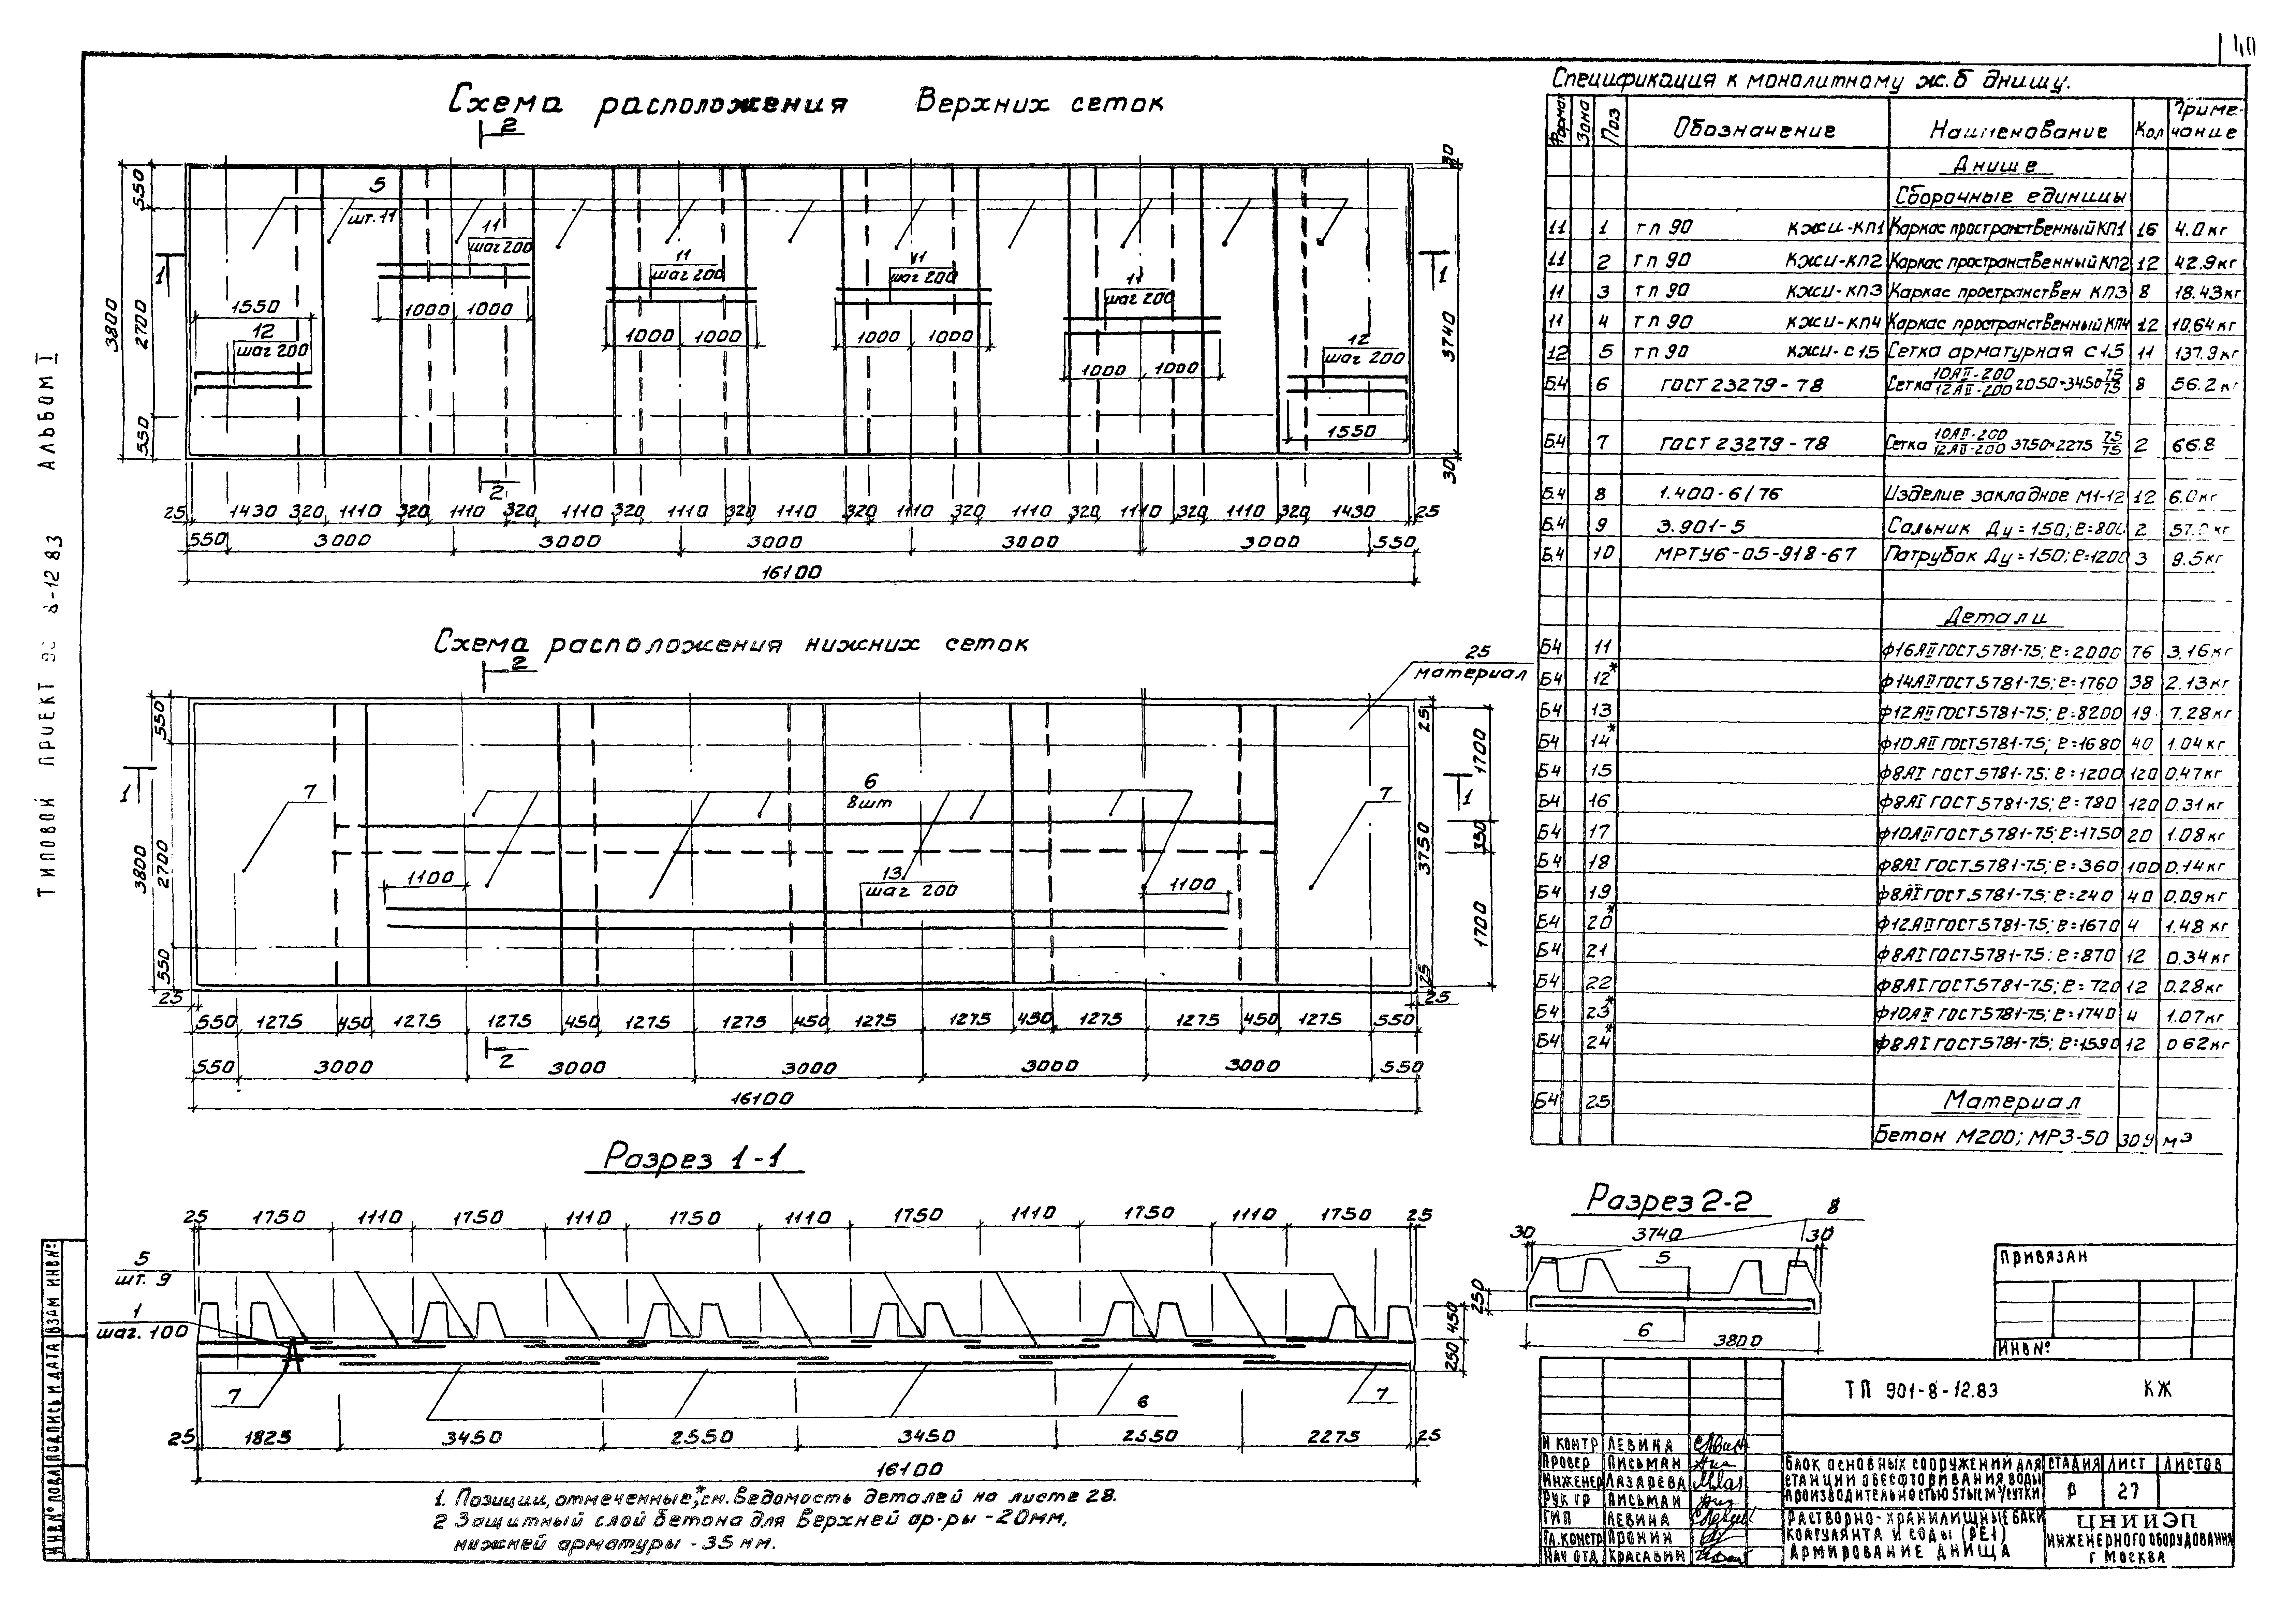 40
Схема расположения Верхних сеток
2
5
шт. 11
11
шаг 200
11
шаг 200
11
шаг 200
11
шаг 200
1
1
1550
12
шаг 200
12
шаг 200
1550
1000 1000
1000 1000
1000 1000
1000 1000
550
2700
550
3800
30
3740
30
2
25 1430 320 1110 320 1110 320 1110 320 1110 320 1110 320 1110 320 1110 320 1110 320 1110 320 1430 25
550 3000 3000 3000 3000 3000 550
16100
Схема расположения нижних сеток
2
25
материал
550
2700
550
3800
1
7
6
8шт
7
1
1100
13
шаг 200
1100
25
3750
25
1700
350
1700
25
25
550 1275 450 1275 1275 450 1275 1275 450 1275 1275 450 1275 1275 450 1275 550
2
550 3000 3000 3000 3000 3000 550
16100
Разрез 1-1
25 1750 1110 1750 1110 1750 1110 1750 1110 1750 1110 1750 25
5
шт. 9
1
шаг. 100
7
6
7
450
250
25 1825 3450 2550 3450 2550 2275 25
16100
1. Позиции, отмеченные,* см. Ведомость деталей на листе 28.
2 Защитный слой бетона для Верхней ар-ры - 20мм,
нижней арматуры - 35 мм.
Спецификация к монолитному ж.б днищу.
Формат Зона Поз Обозначение Наименование Кол Примечание
Днище
Сборочные единицы
11 1 тп 90 КЖИ-КП1 Каркас пространственный КП1 16 4.0кг
11 2 тп 90 КЖИ-КП2 Каркас пространственный КП2 12 42.9кг
11 3 тп 90 КЖИ-КП3 Каркас пространствен КП3 8 18.43кг
11 4 тп 90 КЖИ-КП4 Каркас пространственный КП4 12 10,64кг
12 5 тп 90 КЖИ-С15 Сетка арматурная С15 11 137.9кг
Б.4 6 ГОСТ 23279-78 Сетка 10АII-200/12АII-200 2050×3450 75/75 8 56.2кг
Б.4 7 ГОСТ 23279-78 Сетка 10АII-200/12АII-200 3750×2275 75/75 2 66.8
Б.4 8 1.400-6/76 Изделие закладное М1-12 12 6.0кг
Б.4 9 3.901-5 Сальник Ду=150; ℓ=800 2 кг
Б.4 10 МРТУ6-05-918-67 Патрубок Ду=150; ℓ=1200 3 9.5кг
Детали
Б4 11 ф16АII ГОСТ 5781-75; ℓ=2000 76 3.16кг
Б4 12* ф14АII ГОСТ 5781-75; ℓ=1760 38 2.13кг
Б4 13 ф12АII ГОСТ 5781-75; ℓ=8200 19 7.28кг
Б4 14* ф10АII ГОСТ 5781-75; ℓ=1680 40 1.04кг
Б4 15 ф8АI ГОСТ 5781-75; ℓ=1200 120 0.47кг
Б4 16 ф8АI ГОСТ 5781-75; ℓ=780 120 0.31кг
Б4 17 ф10АII ГОСТ 5781-75; ℓ=1750 20 1.08кг
Б4 18 ф8АI ГОСТ 5781-75; ℓ=360 100 0.14кг
Б4 19 ф8АI ГОСТ 5781-75; ℓ=240 40 0.09кг
Б4 20* ф12АII ГОСТ 5781-75; ℓ=1670 4 1.48кг
Б4 21 ф8АI ГОСТ 5781-75; ℓ=870 12 0.34кг
Б4 22 ф8АI ГОСТ 5781-75; ℓ=720 12 0.28кг
Б4 23* ф10АII ГОСТ 5781-75; ℓ=1740 4 1.07кг
Б4 24* ф8АI ГОСТ 5781-75; ℓ=1590 12 0 62кг
Б4 25 Материал
Бетон М200; МРЗ-50 м³
Разрез 2-2
30 3740 30
8
5
250
6
3800
ПРИВЯЗАН
ИНВ №
ТП 901-8-12.83 КЖ
Н КОНТР ЛЕВИНА
ПРОВЕР ПИСЬМАН
ИНЖЕНЕР ЛАЗАРЕВА
РУК ГР ПИСЬМАН
ГИП ЛЕВИНА
ГЛ.КОНСТР ПРОНИН
НАЧ ОТД КРАСАВИН
БЛОК ОСНОВНЫХ СООРУЖЕНИЙ ДЛЯ
СТАНЦИИ ОБЕСФТОРИВАНИЯ ВОДЫ
ПРОИЗВОДИТЕЛЬНОСТЬЮ 5 ТЫС М³/СУТКИ
СТАДИЯ ЛИСТ ЛИСТОВ
Р 27
РАСТВОРНО-ХРАНИЛИЩНЫЕ БАКИ
КОАГУЛЯНТА И СОДЫ (РЕ1)
АРМИРОВАНИЕ ДНИЩА
ЦНИИЭП
ИНЖЕНЕРНОГО ОБОРУДОВАНИЯ
Г МОСКВА
ТИПОВОЙ ПРОЕКТ 90 8-12 83 АЛЬБОМ I
ИНВ № ПОДЛ ПОДПИСЬ И ДАТА ВЗАМ ИНВ №